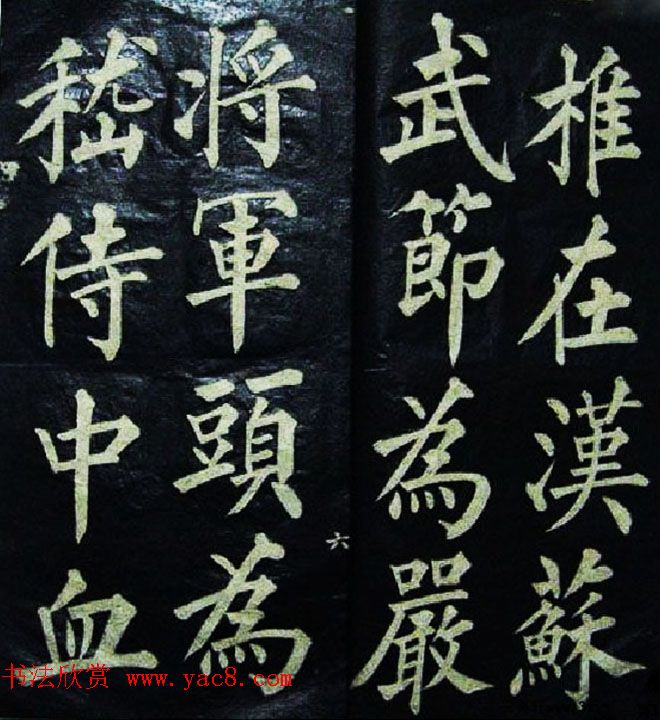 椎在漢蘇
武節為嚴
將軍頭為
嵇侍中血
六
书法欣赏 www.yac8.com